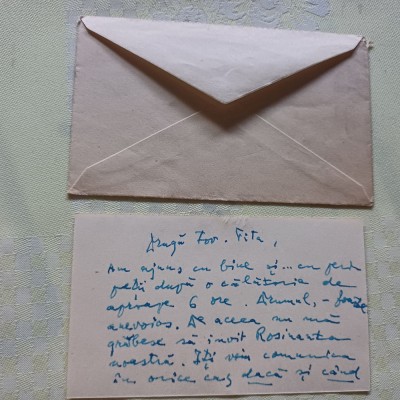 Dragă Tov. Fita,
- Am ajuns cu bine și... cu
după o călătorie de
aproape 6 ore. Drumul, - foarte
anevoios. De aceea nu mă
grăbesc să invit Rosinanta
noastră. Îți voiu comunica
în orice caz dacă și când